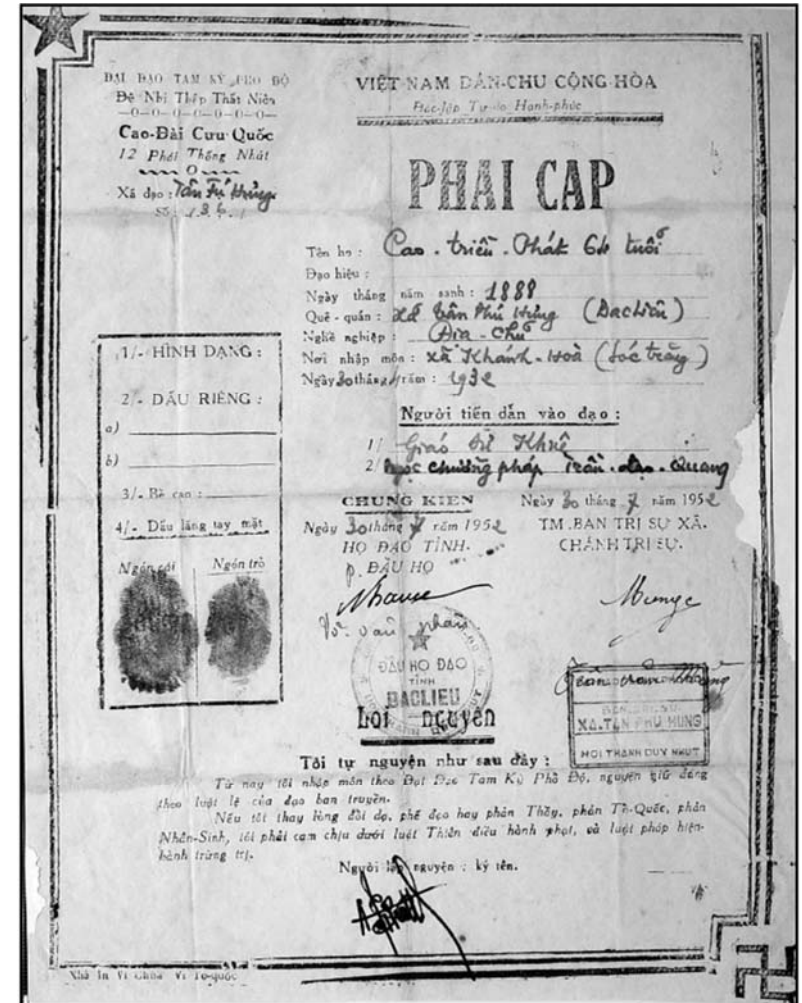 ĐẠI ĐẠO TAM KỲ PHỔ ĐỘ
Đệ Nhị Thập Thất Niên
—O—O—O—O—O—O—O—
Cao-Đài Cứu Quốc
12 Phái Thống Nhất
O
Xã đạo : Tân Phú Hưng
Số
VIỆT NAM DÂN-CHU CỘNG-HÒA
Độc-lập Tự-do Hạnh-phúc
PHÁI CAP
Tên họ : Cao-triều-Phát 64 tuổi
Đạo hiệu :
Ngày tháng năm sanh : 1888
Quê-quán : Xã Tân Phú Hưng (Baclieu)
Nghề nghiệp : Địa-Chủ
Nơi nhập môn : xã Khánh-Hoà (Sóc trăng)
Ngày 30 tháng năm : 1932
Người tiến dẫn vào đạo :
1/ Giáo Sư Khuê
2/ Ngọc chưởng pháp Trần-đạo-Quang
1/- HÌNH DẠNG :
2/- DẤU RIÊNG :
a)
b)
3/- Bề cao :
4/- Dấu lăng tay mặt
Ngón cái Ngón trỏ
CHỨNG KIẾN
Ngày 30 tháng 7 năm 1952
HỌ ĐẠO TỈNH.
p. ĐẦU HỌ
Ngày 30 tháng 7 năm 1952
TM.BAN TRỊ SỰ XÃ.
CHÁNH TRỊ SỰ.
ĐẦU HỌ ĐẠO
TỈNH
BACLIEU
XA.TÂN PHU HUNG
HOI THANH DUY NHUT
Lời nguyện
Tôi tự nguyện như sau đây :
Từ nay tôi nhập môn theo Đại Đạo Tam Kỳ Phổ Độ, nguyện giữ đúng
theo luật lệ của đạo ban truyền.
Nếu tôi thay lòng đổi dạ, phế đạo hay phản Thầy, phản Tổ-Quốc, phản
Nhân-Sinh, tôi phải cam chịu dưới luật Thiên điều hành phạt, và luật pháp hiện-
hành trừng trị.
Người lập nguyện : ký tên.
Nhà In Vì Chúa Vì Tổ-quốc